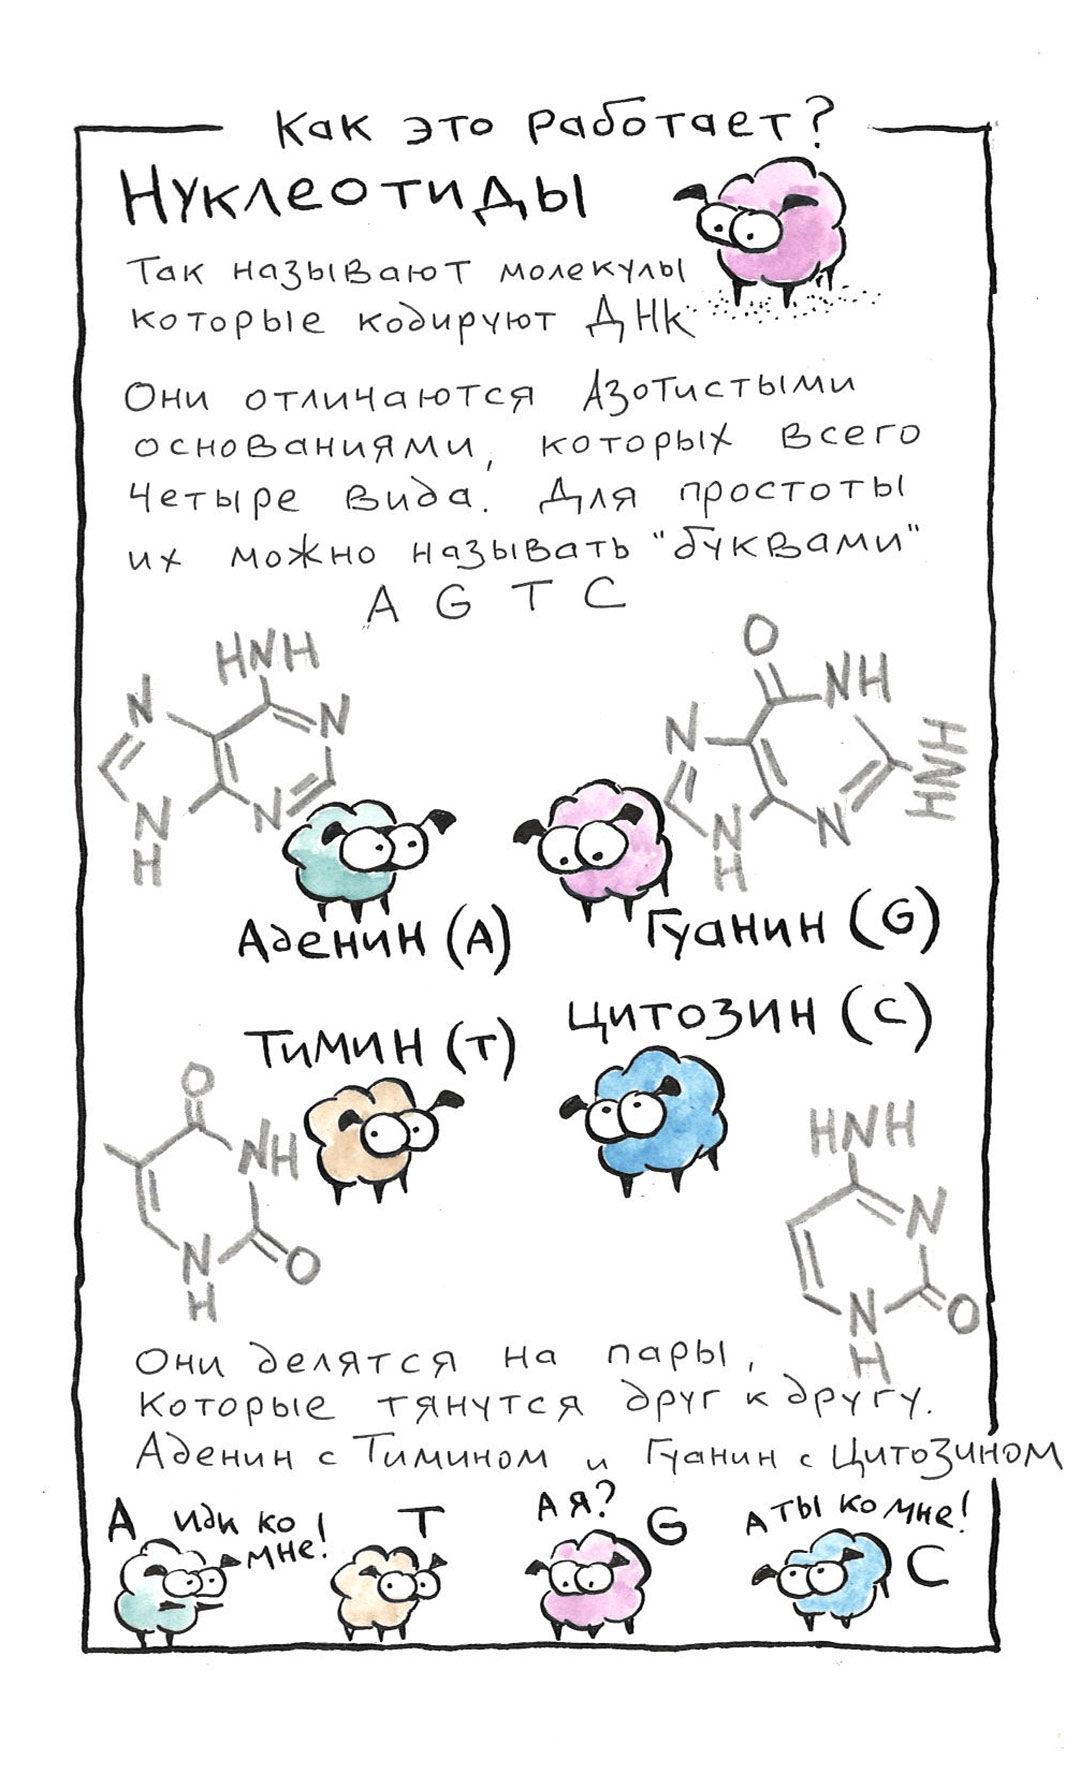 Как это работает?
Нуклеотиды
Так называют молекулы
которые кодируют ДНК
Они отличаются Азотистыми
основаниями, которых всего
четыре вида. Для простоты
их можно называть "буквами"
A G T C
HNH
N
N
N
N
H
O
NH
N
HNH
N
N
H
Аденин (A)
Гуанин (G)
Тимин (T)
Цитозин (C)
O
NH
N
H
O
HNH
N
N
H
O
Они делятся на пары,
которые тянутся друг к другу.
Аденин с Тимином и Гуанин с Цитозином
A
иди ко мне!
T
А я?
G
А ты ко мне!
C